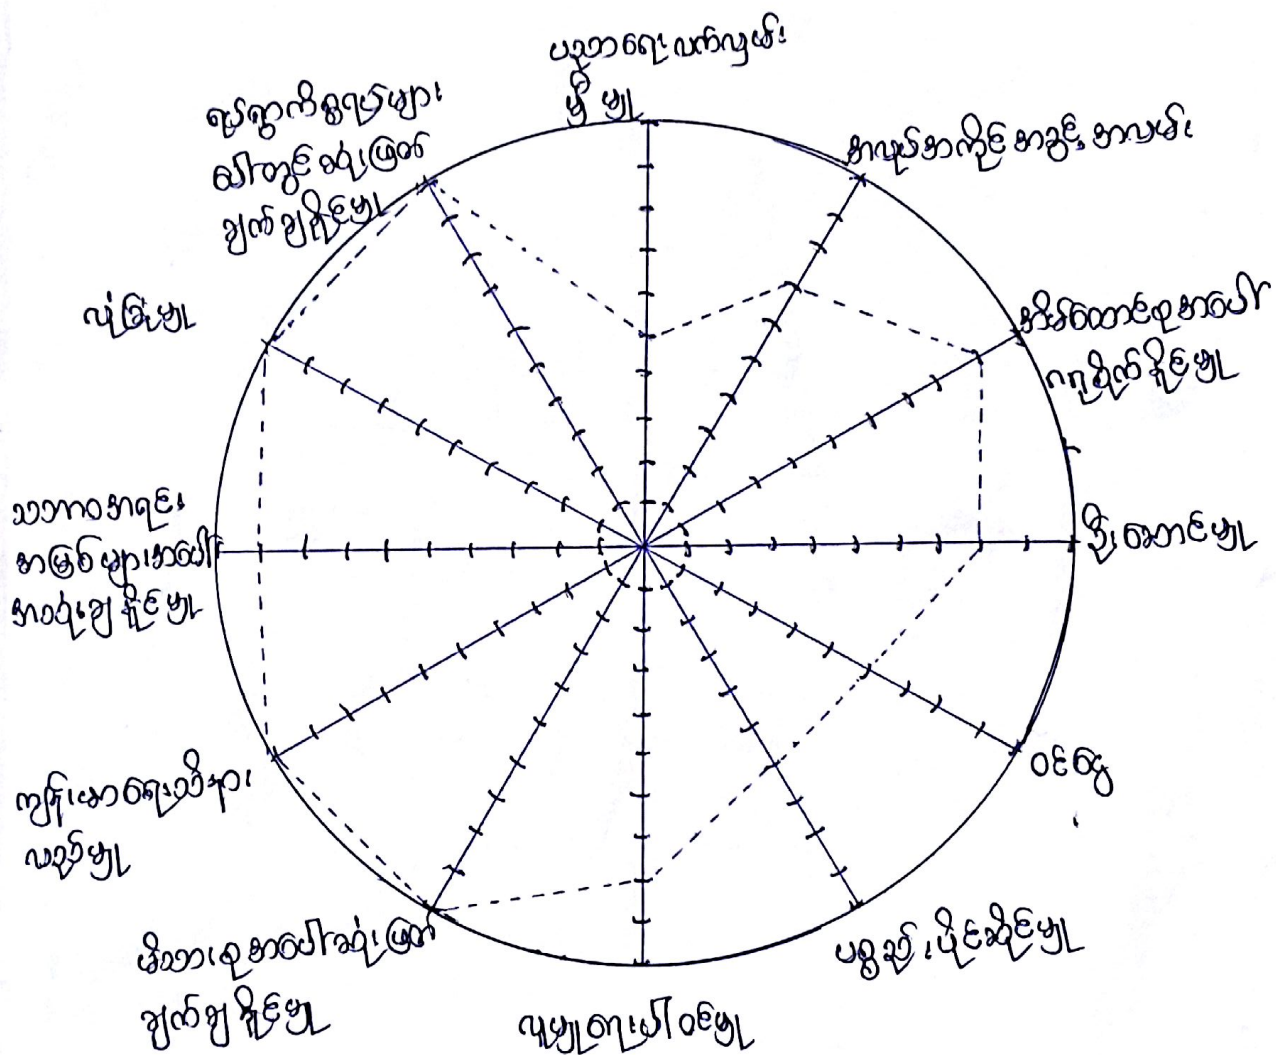 ပညာရေးလက်လှမ်း
မှီမှု
အလုပ်အကိုင်အခွင့်အလမ်း
အိမ်ထောင်စုအပေါ်
ဂရုစိုက်နိုင်မှု
ဦးဆောင်မှု
ဝင်ငွေ
ပစ္စည်းပိုင်ဆိုင်မှု
လူမှုရေးပါဝင်မှု
မိသားစုအပေါ်ဆုံးဖြတ်
ချက်ချနိုင်မှု
ကျန်းမာရေးသိနား
လည်မှု
သဘာဝအရင်း
အမြစ်များအပေါ်
အသုံးချနိုင်မှု
လုံခြုံမှု
ရပ်ရွာကိစ္စရပ်များ
ပေါ်တွင်ဆုံးဖြတ်
ချက်ချနိုင်မှု